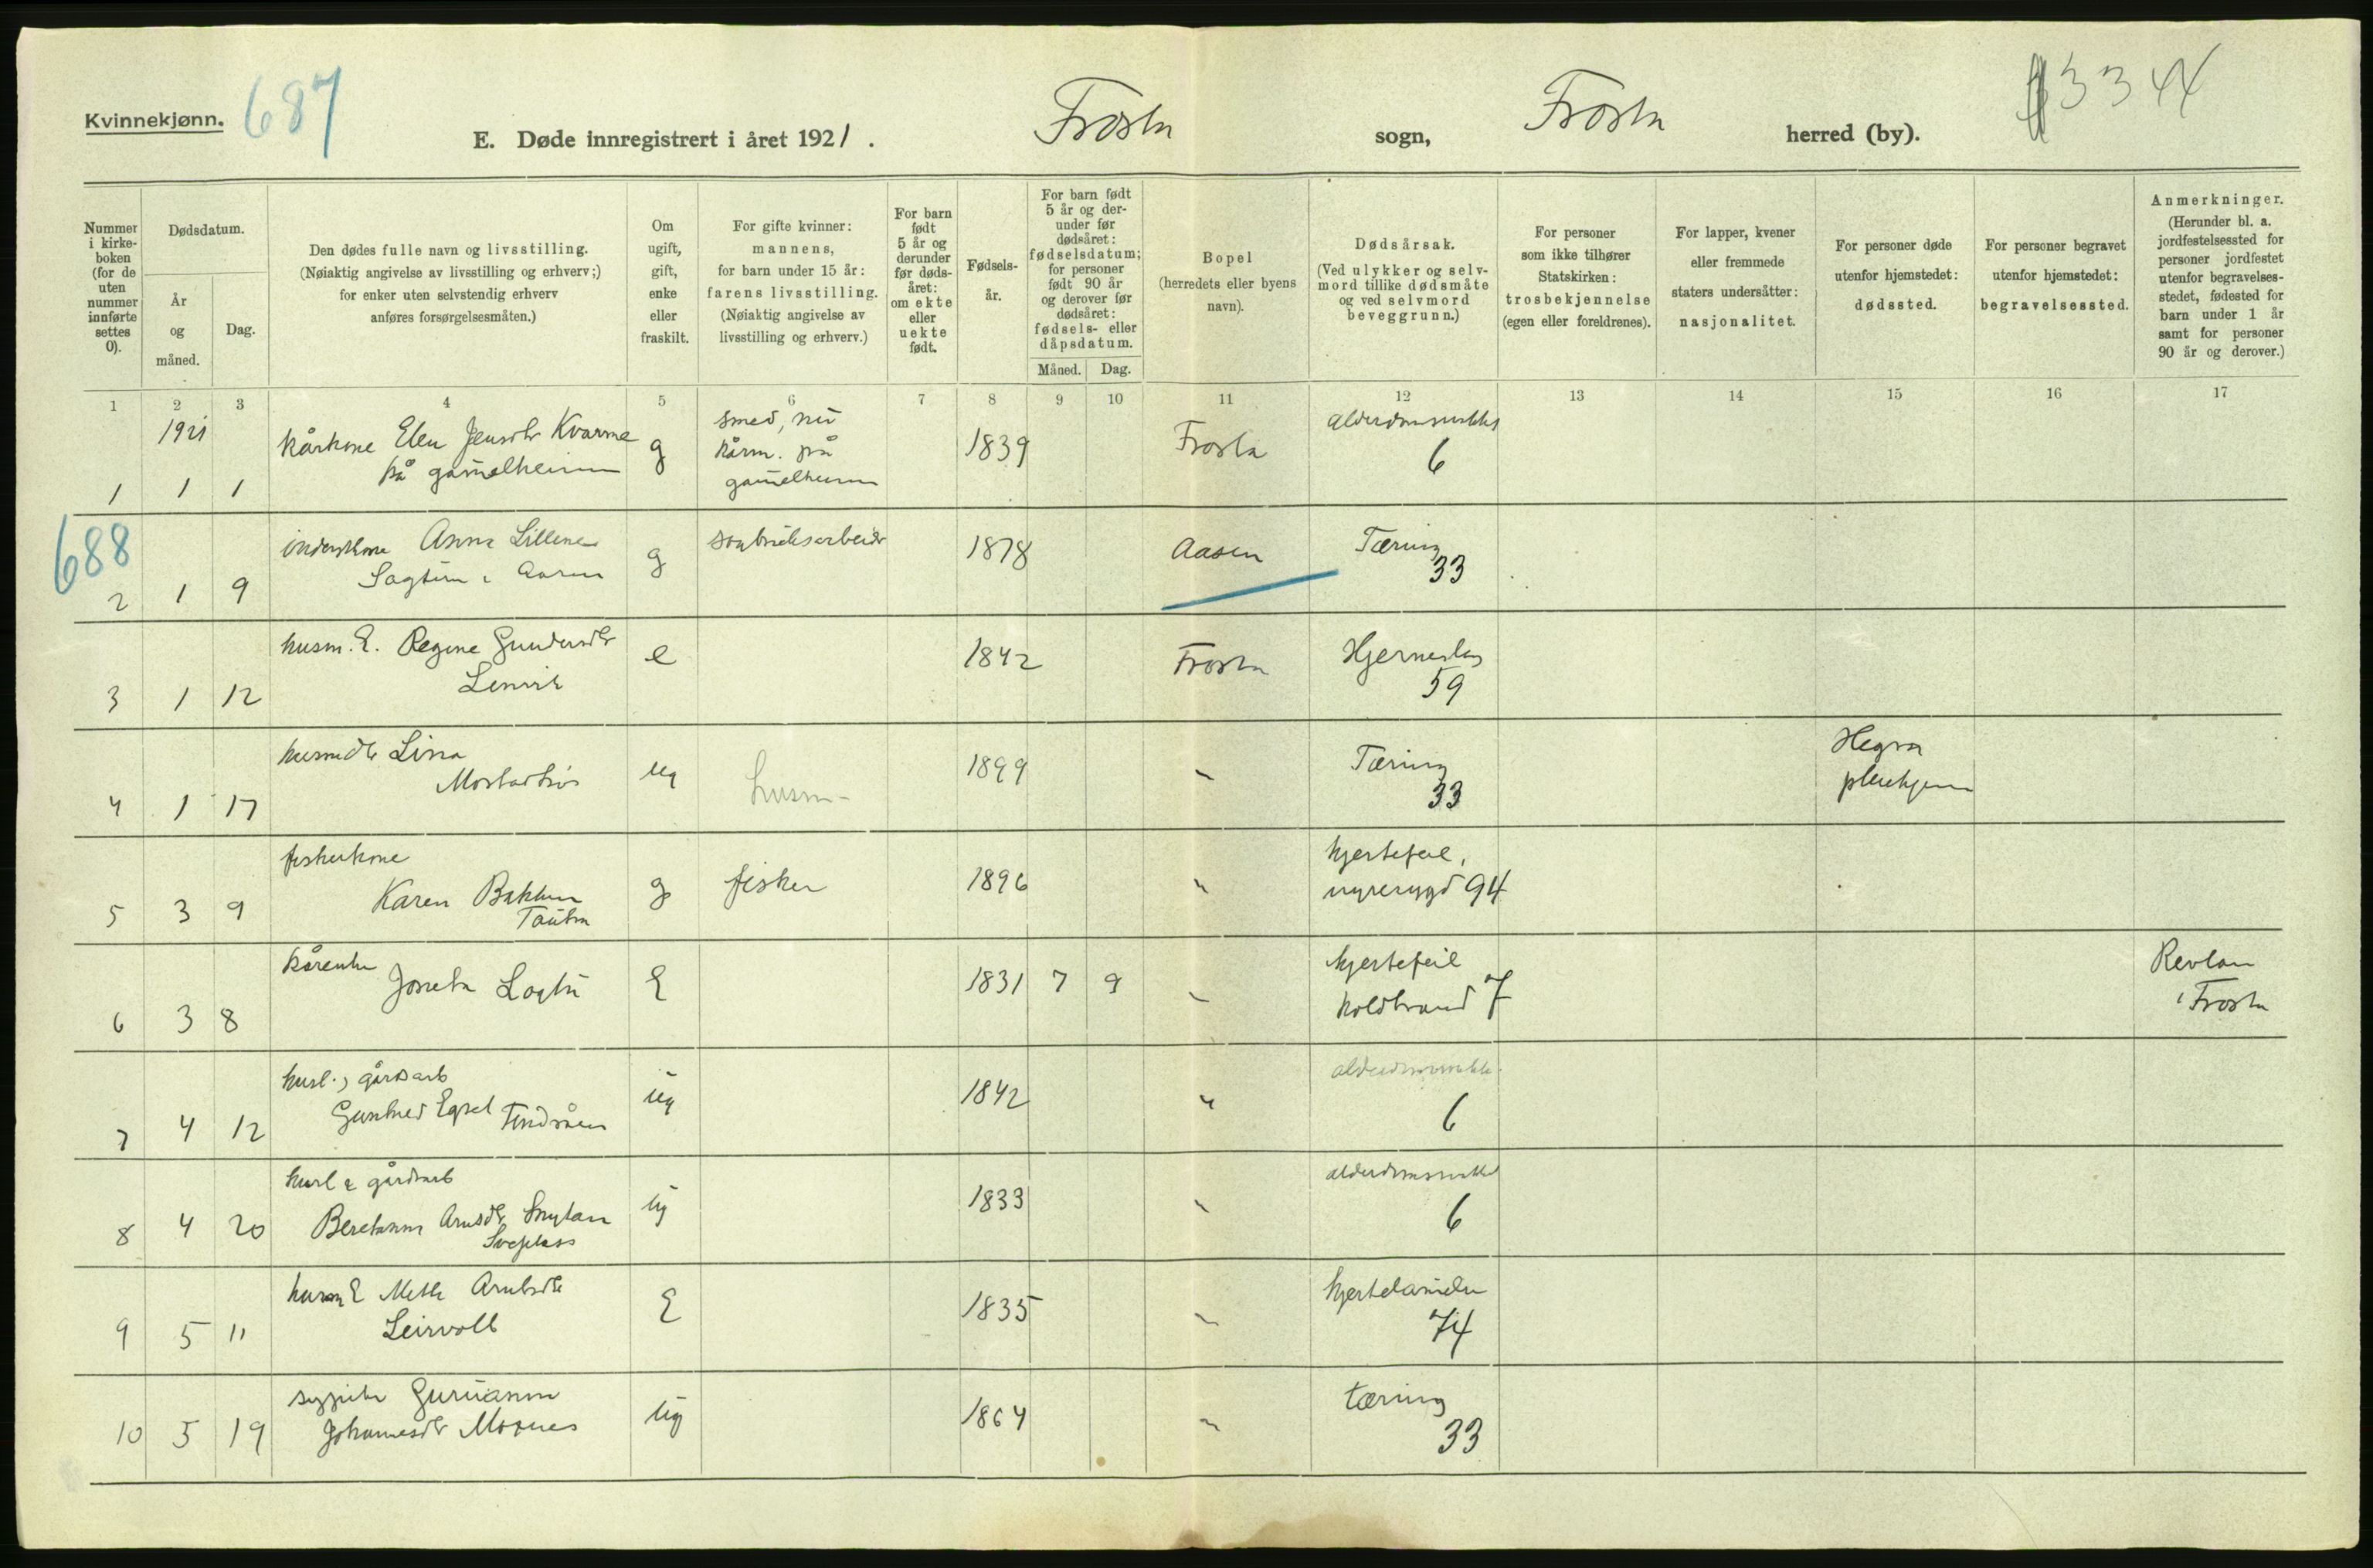 Kvinnekjønn.
687
E. Døde innregistrert i året 1921.
Frosta
sogn,
Frosta
herred (by).
334
Nummer i kirkeboken (for de uten nummer innførte settes 0).
Dødsdatum.
År og måned.
Dag.
Den dødes fulle navn og livsstilling.
(Nøiaktig angivelse av livsstilling og erhverv;)
for enker uten selvstendig erhverv
anføres forsørgelsesmåten.)
Om ugift, gift, enke eller fraskilt.
For gifte kvinner:
mannens,
for barn under 15 år:
farens livsstilling.
(Nøiaktig angivelse av
livsstilling og erhverv.)
For barn født 5 år og derunder før dødsåret: om ekte eller uekte født.
Fødselsår.
For barn født 5 år og derunder før dødsåret: fødselsdatum; for personer født 90 år og derover før dødsåret: fødsels- eller dåpsdatum.
Måned.
Dag.
Bopel
(herredets eller byens
navn).
Dødsårsak.
(Ved ulykker og selvmord tillike dødsmåte
og ved selvmord
beveggrunn.)
For personer
som ikke tilhører
Statskirken:
trosbekjennelse
(egen eller foreldrenes).
For lapper, kvener
eller fremmede
staters undersåtter:
nasjonalitet.
For personer døde
utenfor hjemstedet:
dødssted.
For personer begravet
utenfor hjemstedet:
begravelsessted.
Anmerkninger.
(Herunder bl. a.
jordfestelsessted for
personer jordfestet
utenfor begravelsesstedet, fødested for
barn under 1 år
samt for personer
90 år og derover.)
1 2 3 4 5 6 7 8 9 10 11 12 13 14 15 16 17
1921
1 1 1 kårkone Elen Jensdtr Kvarme
på gamelheimen
g
smed, nu
kårm. på
gamelheimen
1839 Frosta
6
688
2 1 9 Anna
g 1878 Aasen Tæring
33
3 1 12 husm. E. Regine Gundersdtr
e 1842 Frosta Hjerneslag
59
4 1 17 Lina
ug husm- 1899 " Tæring
33
Hegra
pleiehjem
5 3 9 fiskerkone
Karen Bakken
Tautra
g fisker 1896 " hjertefeil,
nyresygd 94
6 3 8 kårenke
Logtu
E 1831 7 9 " hjertefeil
koldbrand 7
Revlan
i Frosta
7 4 12 husl. gårdsarb
ug 1842 "
6
8 4 20 husl & gårdsarb
Beretanna Arnsdtr
ug 1833 "
6
9 5 11 husm E
Leirvoll
E 1835 " hjertelammelse
74
10 5 19 Gurianna
Johannesdtr Moones
ug 1864 " tæring
33